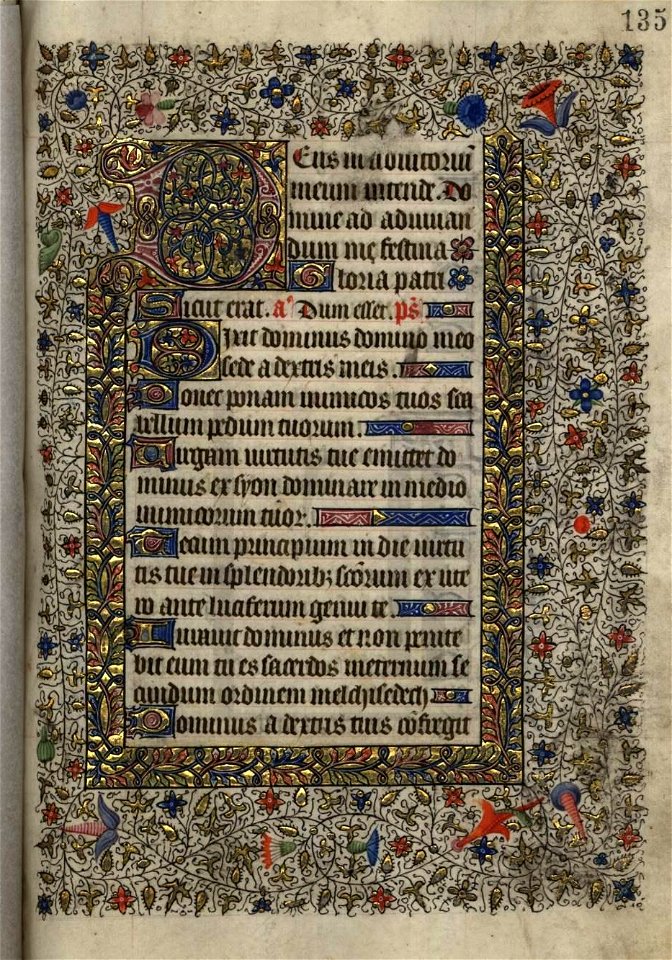 135
Deus in adiutoriū
meum intende. Do
mine ad adiuuan
dum me festina
Gloria patri
Sicut erat. aͣ Dum esset. ps̄
Dixit dominus domino meo
sede a dextris meis.
Donec ponam inimicos tuos sca
bellum pedum tuorum.
Uirgam uirtutis tue emittet do
minus ex syon dominare in medio
inimicorum tuor̄.
Tecum principium in die uirtu
tis tue in splendoribꝫ sc̄orum ex ute
ro ante luciferum genui te.
Iurauit dominus et non penite
bit eum tu es sacerdos ineternum se
cundum ordinem melchisedech
Dominus a dextris tuis cōfregit